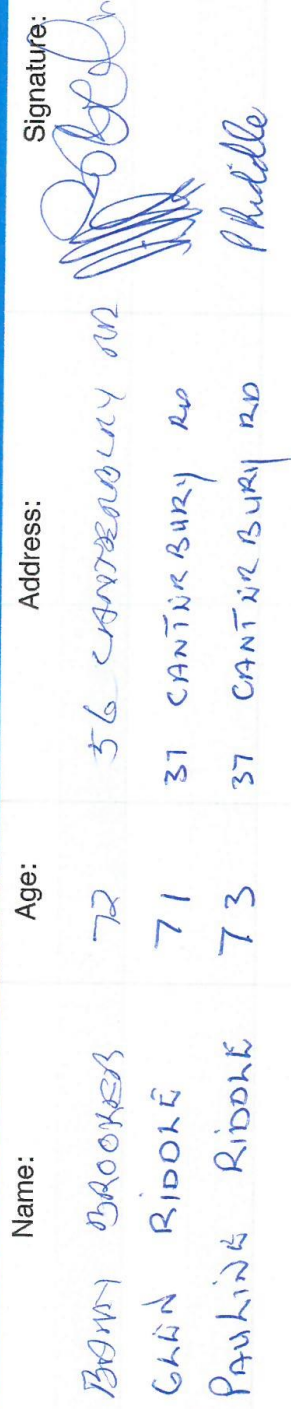 Name: Age: Address: Signature:
BROOKER 72 56 CANTERBURY RD
GLEN RIDDLE 71 37 CANTERBURY RD
PAULINE RIDDLE 73 37 CANTERBURY RD PRiddle